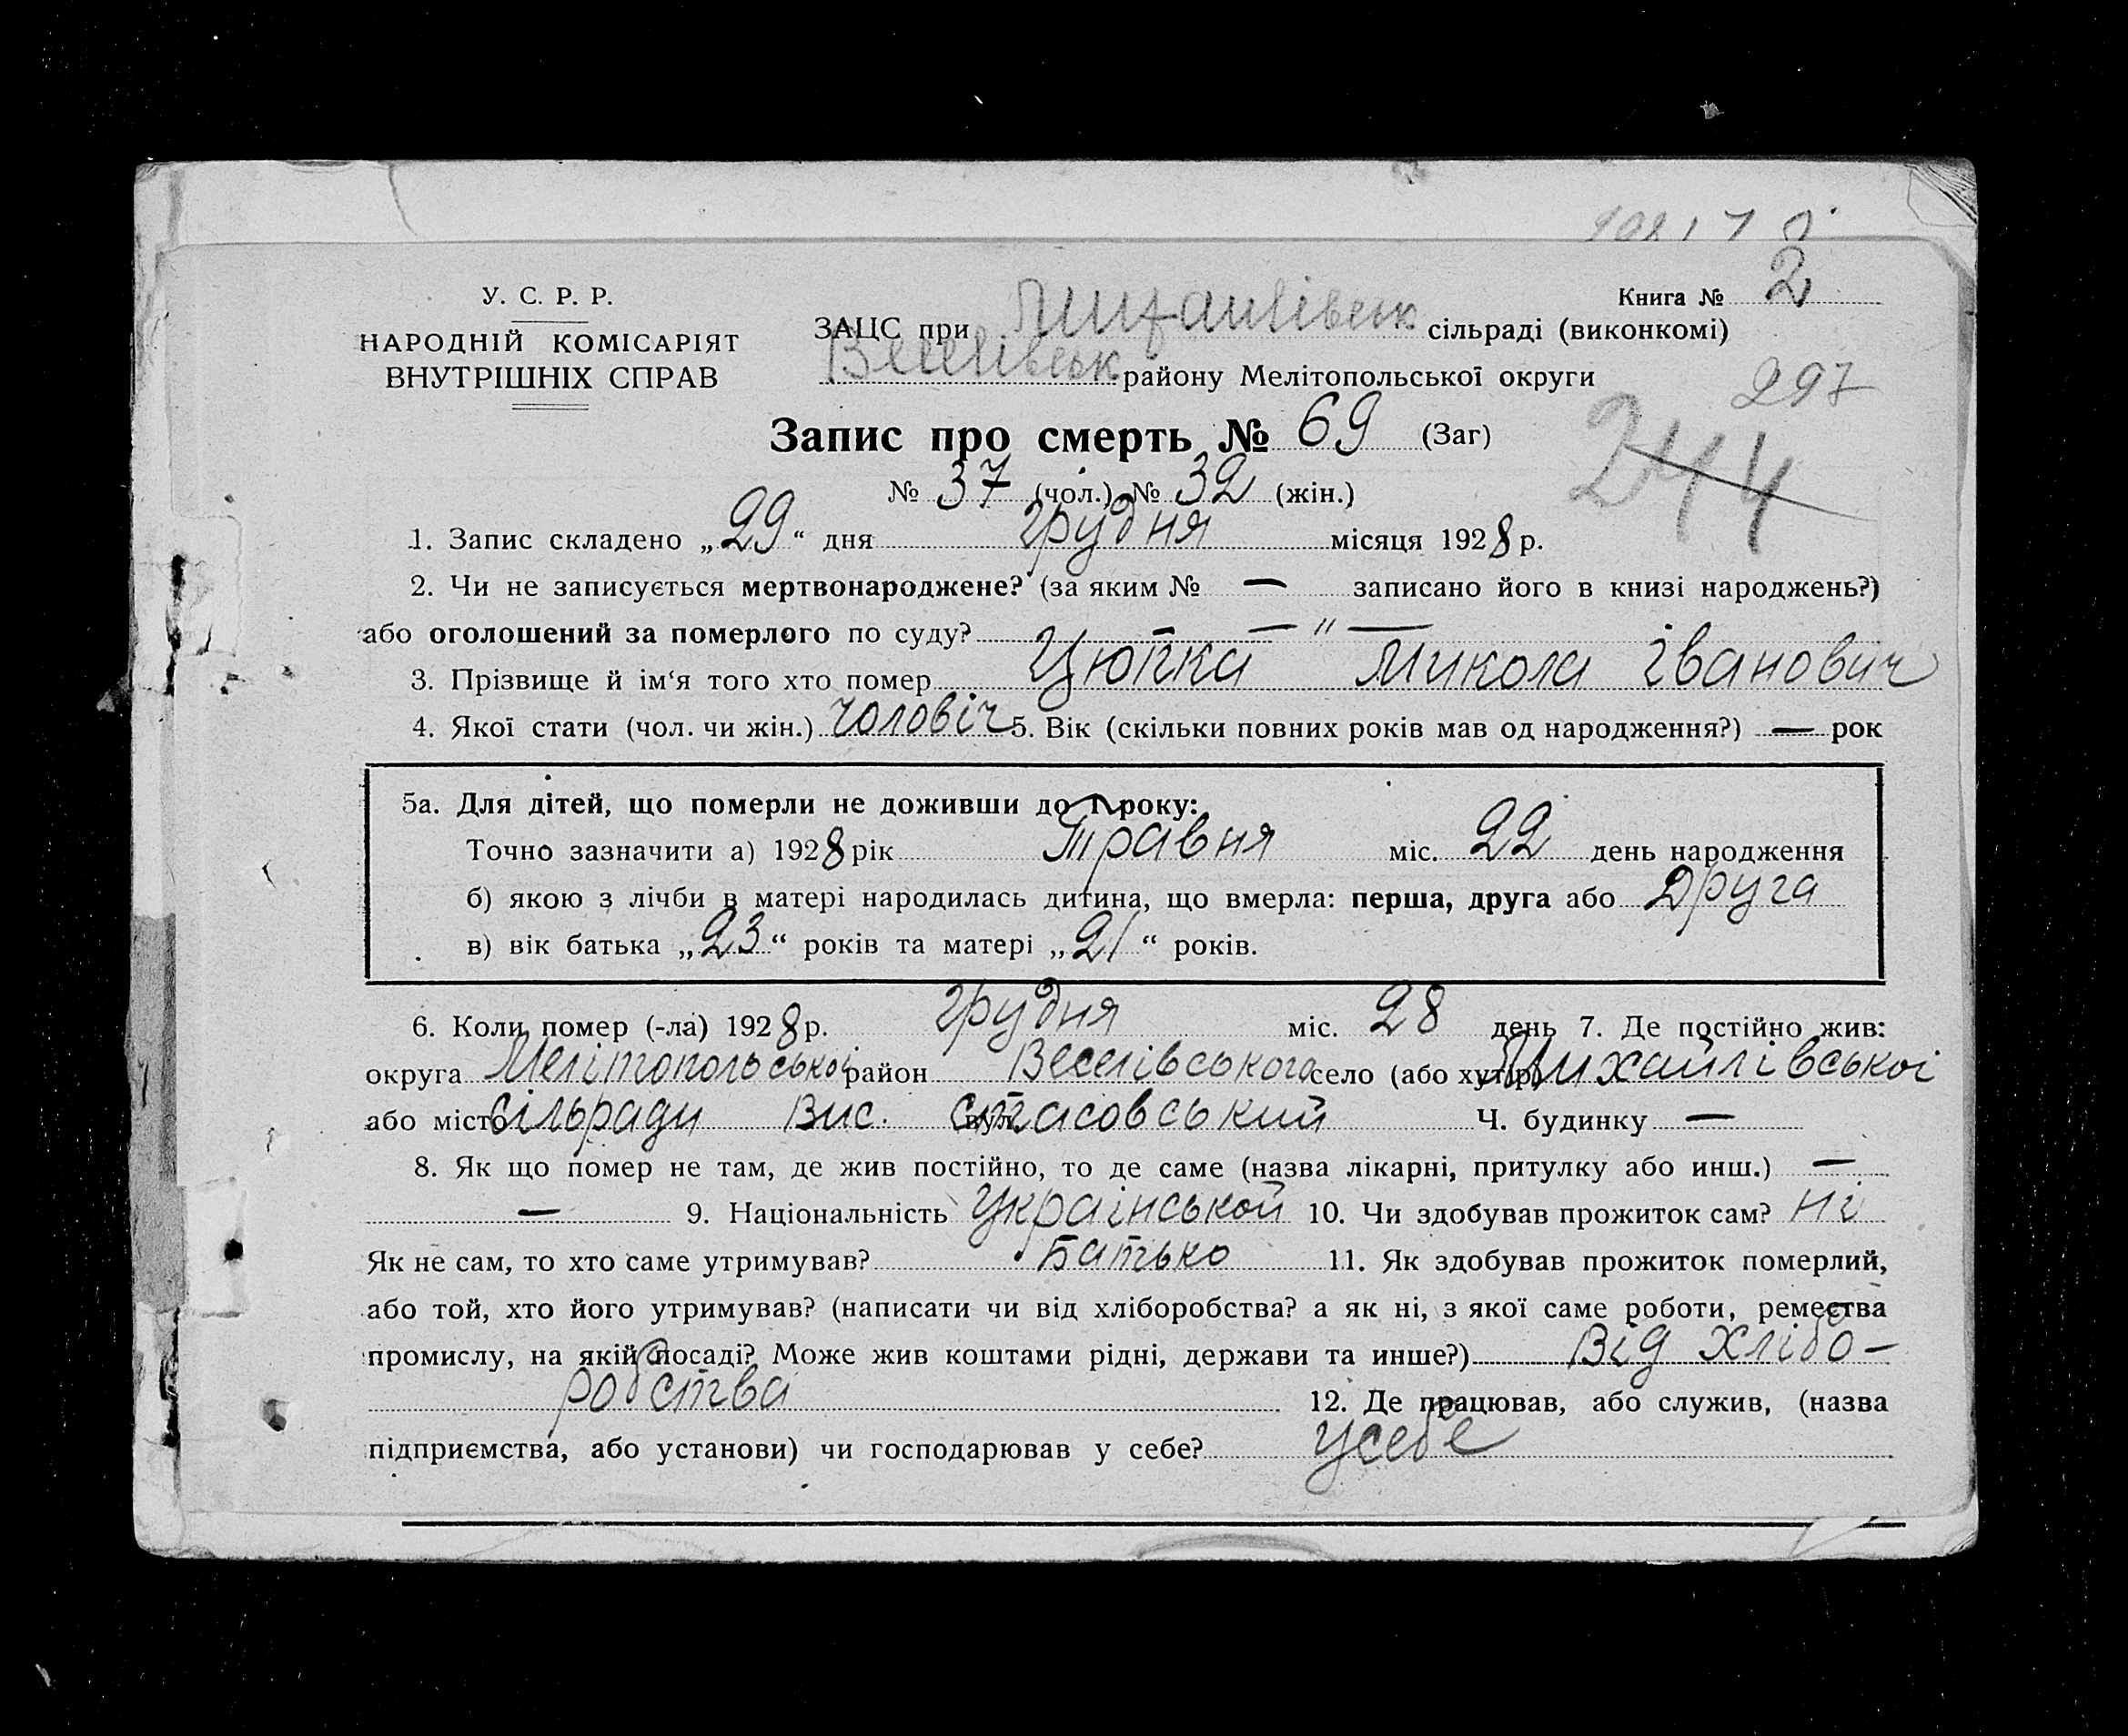 У. С. Р. Р.
НАРОДНІЙ КОМІСАРІЯТ
ВНУТРІШНІХ СПРАВ
Книга № 2
ЗАЦС при Михайлівськ сільраді (виконкомі)
Веселівськ району Мелітопольської округи
297
244
Запис про смерть № 69 (Заг)
№ 37 (чол.) № 32 (жін.)
1. Запис складено „29“ дня грудня місяця 1928 р.
2. Чи не записується мертвонароджене? (за яким № — записано його в книзі народжень?)
або оголошений за померлого по суду? — „ —
3. Прізвище й ім‘я того хто помер Цюпка Микола Іванович
4. Якої стати (чол. чи жін.) чоловіч 5. Вік (скільки повних років мав од народження?) — рок
5а. Для дітей, що померли не доживши до 1 року:
Точно зазначити а) 1928 рік травня міс. 22 день народження
б) якою з лічби в матері народилась дитина, що вмерла: перша, друга або Друга
в) вік батька „23“ років та матері „21“ років.
6. Коли помер (-ла) 1928 р. грудня міс. 28 день 7. Де постійно жив:
округа Мелітопольської район Веселівського село (або хутір) Михайлівської
або місто сільради вис. вул. Стасовський Ч. будинку —
8. Як що помер не там, де жив постійно, то де саме (назва лікарні, притулку або инш.) —
— 9. Національність українськой 10. Чи здобував прожиток сам? ні
Як не сам, то хто саме утримував? Батько 11. Як здобував прожиток померлий,
або той, хто його утримував? (написати чи від хліборобства? а як ні, з якої саме роботи, ремества
промислу, на якій посаді? Може жив коштами рідні, держави та инше?) Від хлібо-
робства 12. Де працював, або служив, (назва
підприємства, або установи) чи господарював у себе? усебе